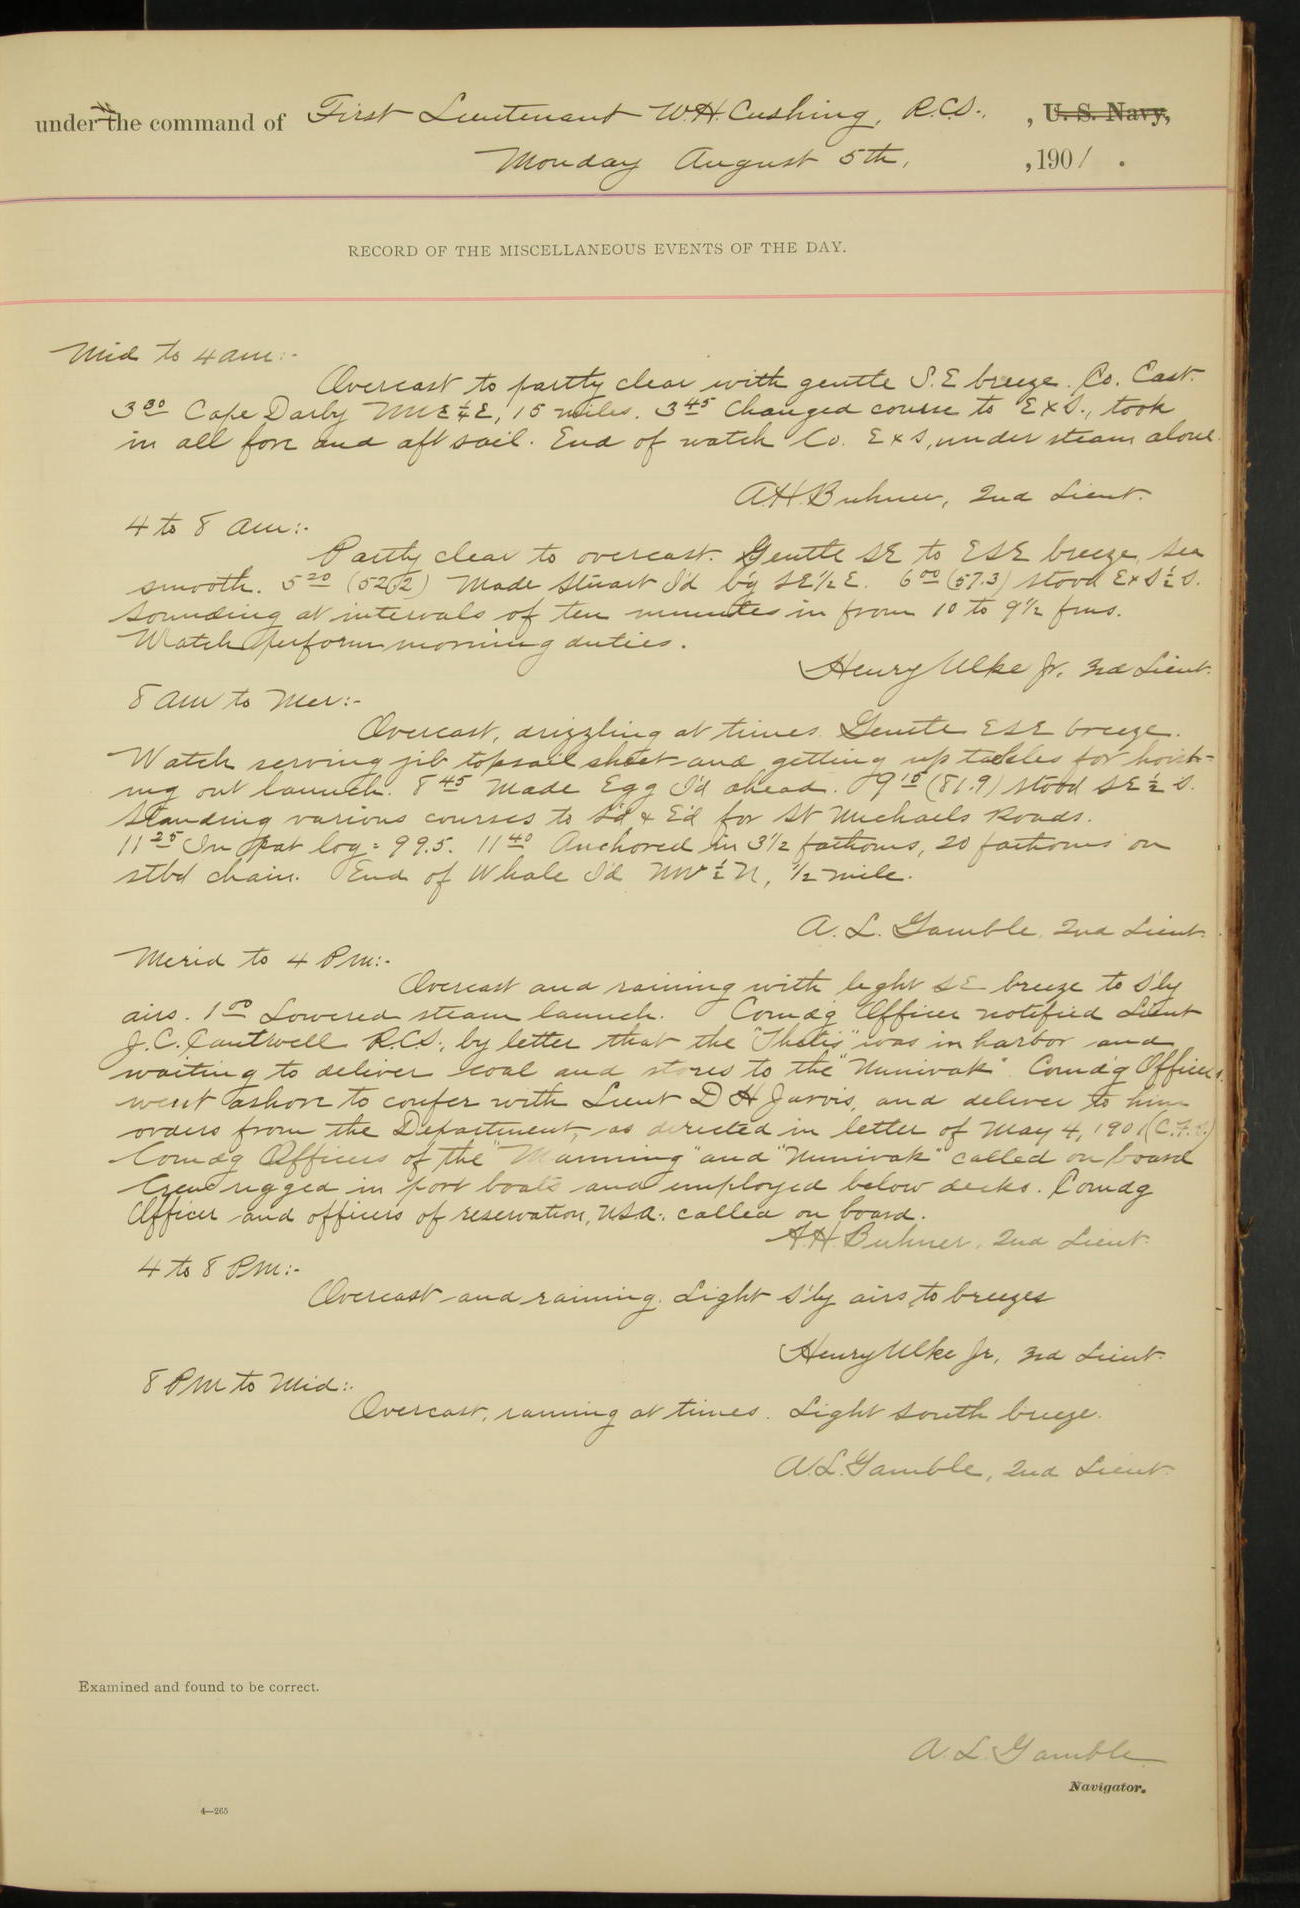 under the command of First Lieutenant W.H. Cushing, R.C.S., , U. S. Navy,
Monday August 5th, , 1901 .
RECORD OF THE MISCELLANEOUS EVENTS OF THE DAY.
Mid to 4 am:-
Overcast to partly clear with gentle S.E breeze. Co. East.
3 30 Cape Darby NNE¼E, 15 miles. 3 45 Changed course to ExS., took
in all fore and aft sail. End of watch Co. ExS, under steam alone.
A.H. Buhner, 2nd Lieut.
4 to 8 am:-
Partly clear to overcast. Gentle SE to ESE breeze, sea
smooth. 5 20 (52.2) Made Stuart I'd b'g SE½E. 6 00 (57.3) stood ExS½S.
Sounding at intervals of ten minutes in from 10 to 9½ fms.
Watch perform morning duties.
Henry Ulke Jr. 3rd Lieut.
8 am to Mer:-
Overcast, drizzling at times. Gentle ESE breeze.
Watch serving jib topsail sheet and getting up tackles for hoist-
ing out launch. 8 45 Made Egg I'd ahead. 9 15 (81.9) stood SE½S.
Standing various courses to S'd & E'd for St Michaels Roads.
11 25 In pat log = 99.5. 11 40 Anchored in 3½ fathoms, 20 fathoms on
stbd chain. End of Whale I'd NW½N, ½ mile.
A. L. Gamble, 2nd Lieut.
Merid to 4 Pm:-
Overcast and raining with light SE breeze to S'ly
airs. 1 00 Lowered steam launch. Comdg Officer notified Lieut
J.C. Cantwell R.C.S., by letter that the "Thetis" was in harbor and
waiting to deliver coal and stores to the "Nunivak". Comd'g Officer
went ashore to confer with Lieut D H Jarvis, and deliver to him
orders from the Department, as directed in letter of May 4, 1901
Comdg Officers of the "Manning" and "Nunivak" called on board
Crew rigged in port boats and employed below decks. Comdg
Officer and officers of reservation, USA., called on board.
A.H. Buhner, 2nd Lieut.
4 to 8 PM:-
Overcast and raining. Light S'ly airs to breezes
Henry Ulke Jr, 3rd Lieut.
8 PM to Mid:-
Overcast, raining at times. Light south breeze.
A.L. Gamble, 2nd Lieut.
Examined and found to be correct.
A. L. Gamble
Navigator.
4—265